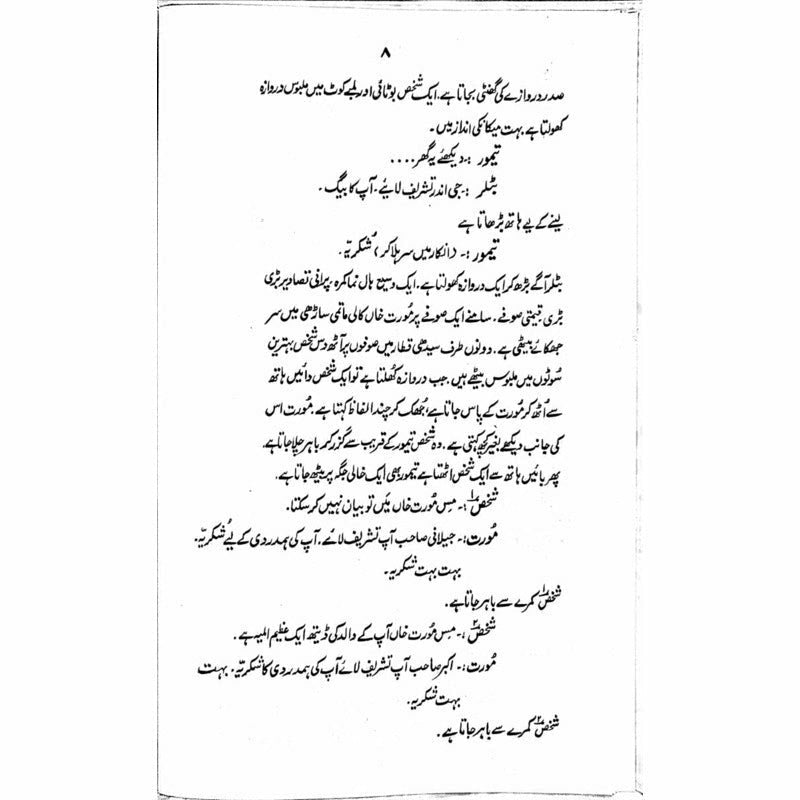 ۸
صدر دروازے کی گھنٹی بجاتا ہے۔ ایک شخص بوٹائی اور لمبے کوٹ میں ملبوس دروازہ
کھولتا ہے بہت میکانکی انداز میں۔
تیمور :۔ دیکھئے یہ گھر ....
بٹلر :۔ جی اندر تشریف لائیے۔ آپ کا بیگ۔
لینے کے لیے ہاتھ بڑھاتا ہے
تیمور :۔ (انکار میں سر ہلا کر) شُکریّہ۔
بٹلر آگے بڑھ کر ایک دروازہ کھولتا ہے۔ ایک وسیع ہال نما کمرہ۔ پرانی تصاویر بڑی
بڑی۔ قیمتی صوفے۔ سامنے ایک صوفے پر مُورت خاں کالی ماتمی ساڑھی میں سر
جھکائے بیٹھی ہے۔ دونوں طرف سیدھی قطار میں صوفوں پر آٹھ دس شخص بہترین
سُوٹوں میں ملبوس بیٹھے ہیں۔ جب دروازہ کُھلتا ہے تو ایک شخص دائیں ہاتھ
سے اُٹھ کر مُورت کے پاس جاتا ہے، جُھک کر چند الفاظ کہتا ہے۔ مُورت اس
کی جانب دیکھے بغیر کچھ کہتی ہے۔ وہ شخص تیمور کے قریب سے گزر کر باہر چلا جاتا ہے۔
پھر بائیں ہاتھ سے ایک شخص اٹھتا ہے تیمور بھی ایک خالی جگہ پر بیٹھ جاتا ہے۔
شخص ۱ :۔ مِس مُورت خاں مَیں تو بیان نہیں کر سکتا۔
مُورت :۔ جیلانی صاحب آپ تشریف لائے۔ آپ کی ہمدردی کے لیے شُکریّہ۔
بہت بہت شکریہ۔
شخص ۱ کمرے سے باہر جاتا ہے۔
شخص ۲ :۔ مِس مُورت خاں آپ کے والد کی ڈیتھ ایک عظیم المیہ ہے۔
مُورت :۔ اکبر صاحب آپ تشریف لائے آپ کی ہمدردی کا شکریّہ۔ بہت
بہت شکریہ۔
شخص ۲ کمرے سے باہر جاتا ہے۔